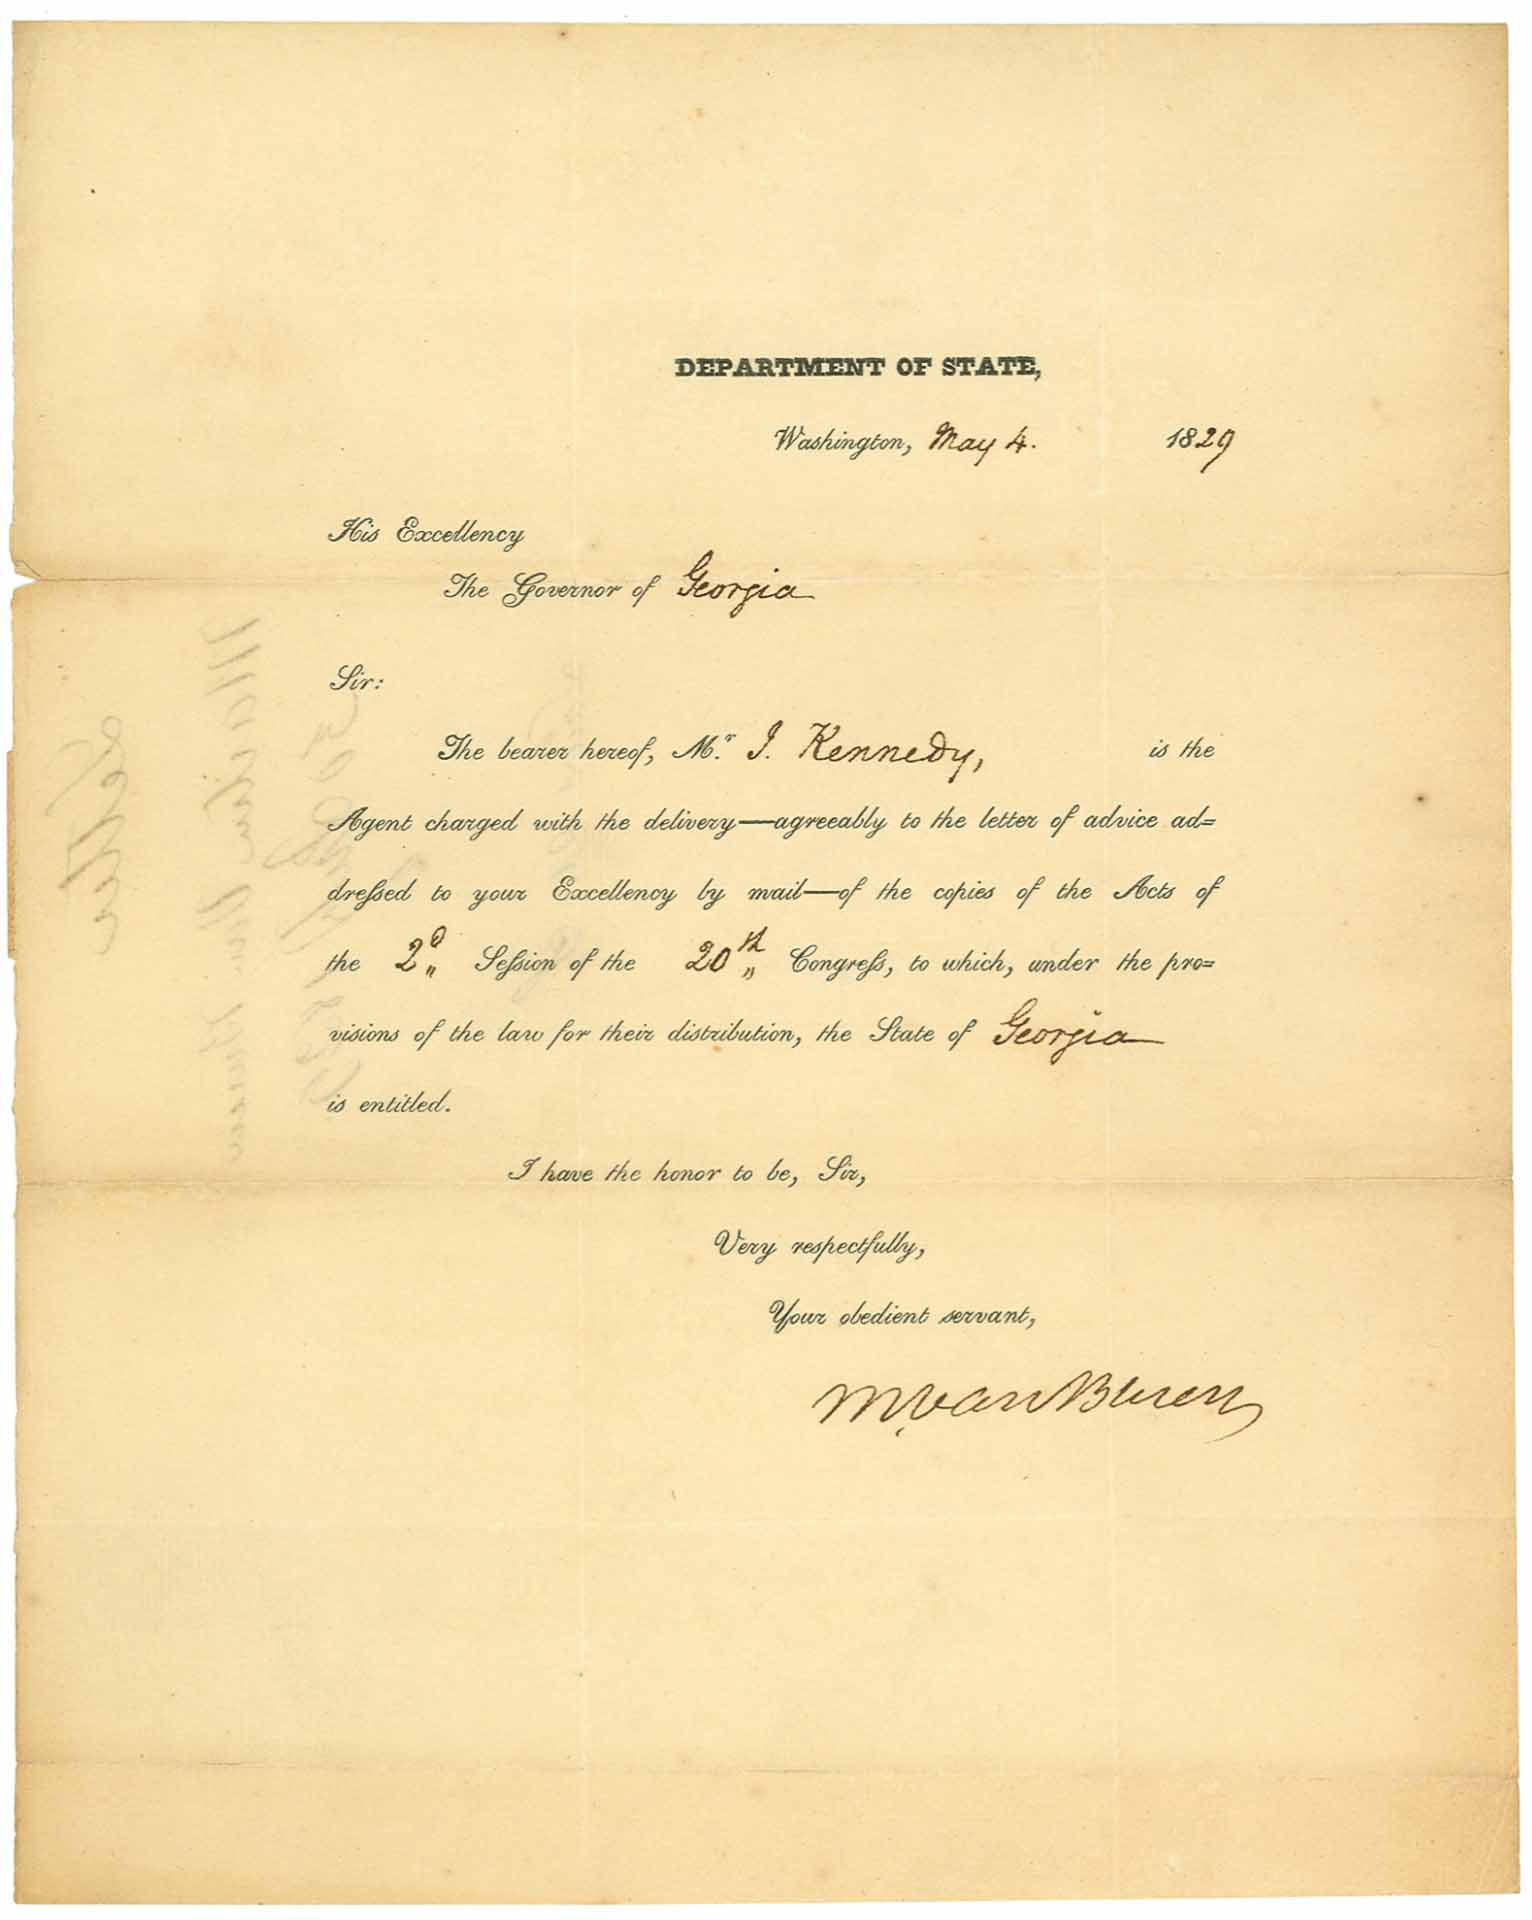 DEPARTMENT OF STATE,
Washington, May 4. 1829
His Excellency
The Governor of Georgia
Sir:
The bearer hereof, Mr. J. Kennedy, is the
Agent charged with the delivery—agreeably to the letter of advice ad=
dreſsed to your Excellency by mail—of the copies of the Acts of
the 2d„ Seſsion of the 20th„ Congreſs, to which, under the pro=
visions of the law for their distribution, the State of Georgia
is entitled.
I have the honor to be, Sir,
Very respectfully,
Your obedient servant,
M. Van Buren